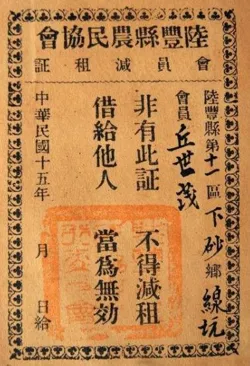 陸豐縣農民協會
會員減租証
陸豐縣第十一區下砂鄉線坑
會員 丘世茂
非有此証 不得減租
借給他人 當為無効
中華民國十五年 月 日給